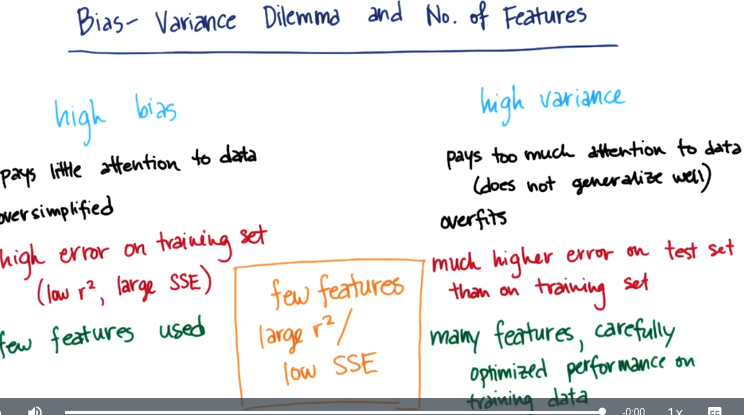 Bias-Variance Dilemma and No. of Features
high bias
pays little attention to data
oversimplified
high error on training set
(low r², large SSE)
few features used
few features
large r²/
low SSE
high variance
pays too much attention to data
(does not generalize well)
overfits
much higher error on test set
than on training set
many features, carefully
optimized performance on
training data
-0:00
1x